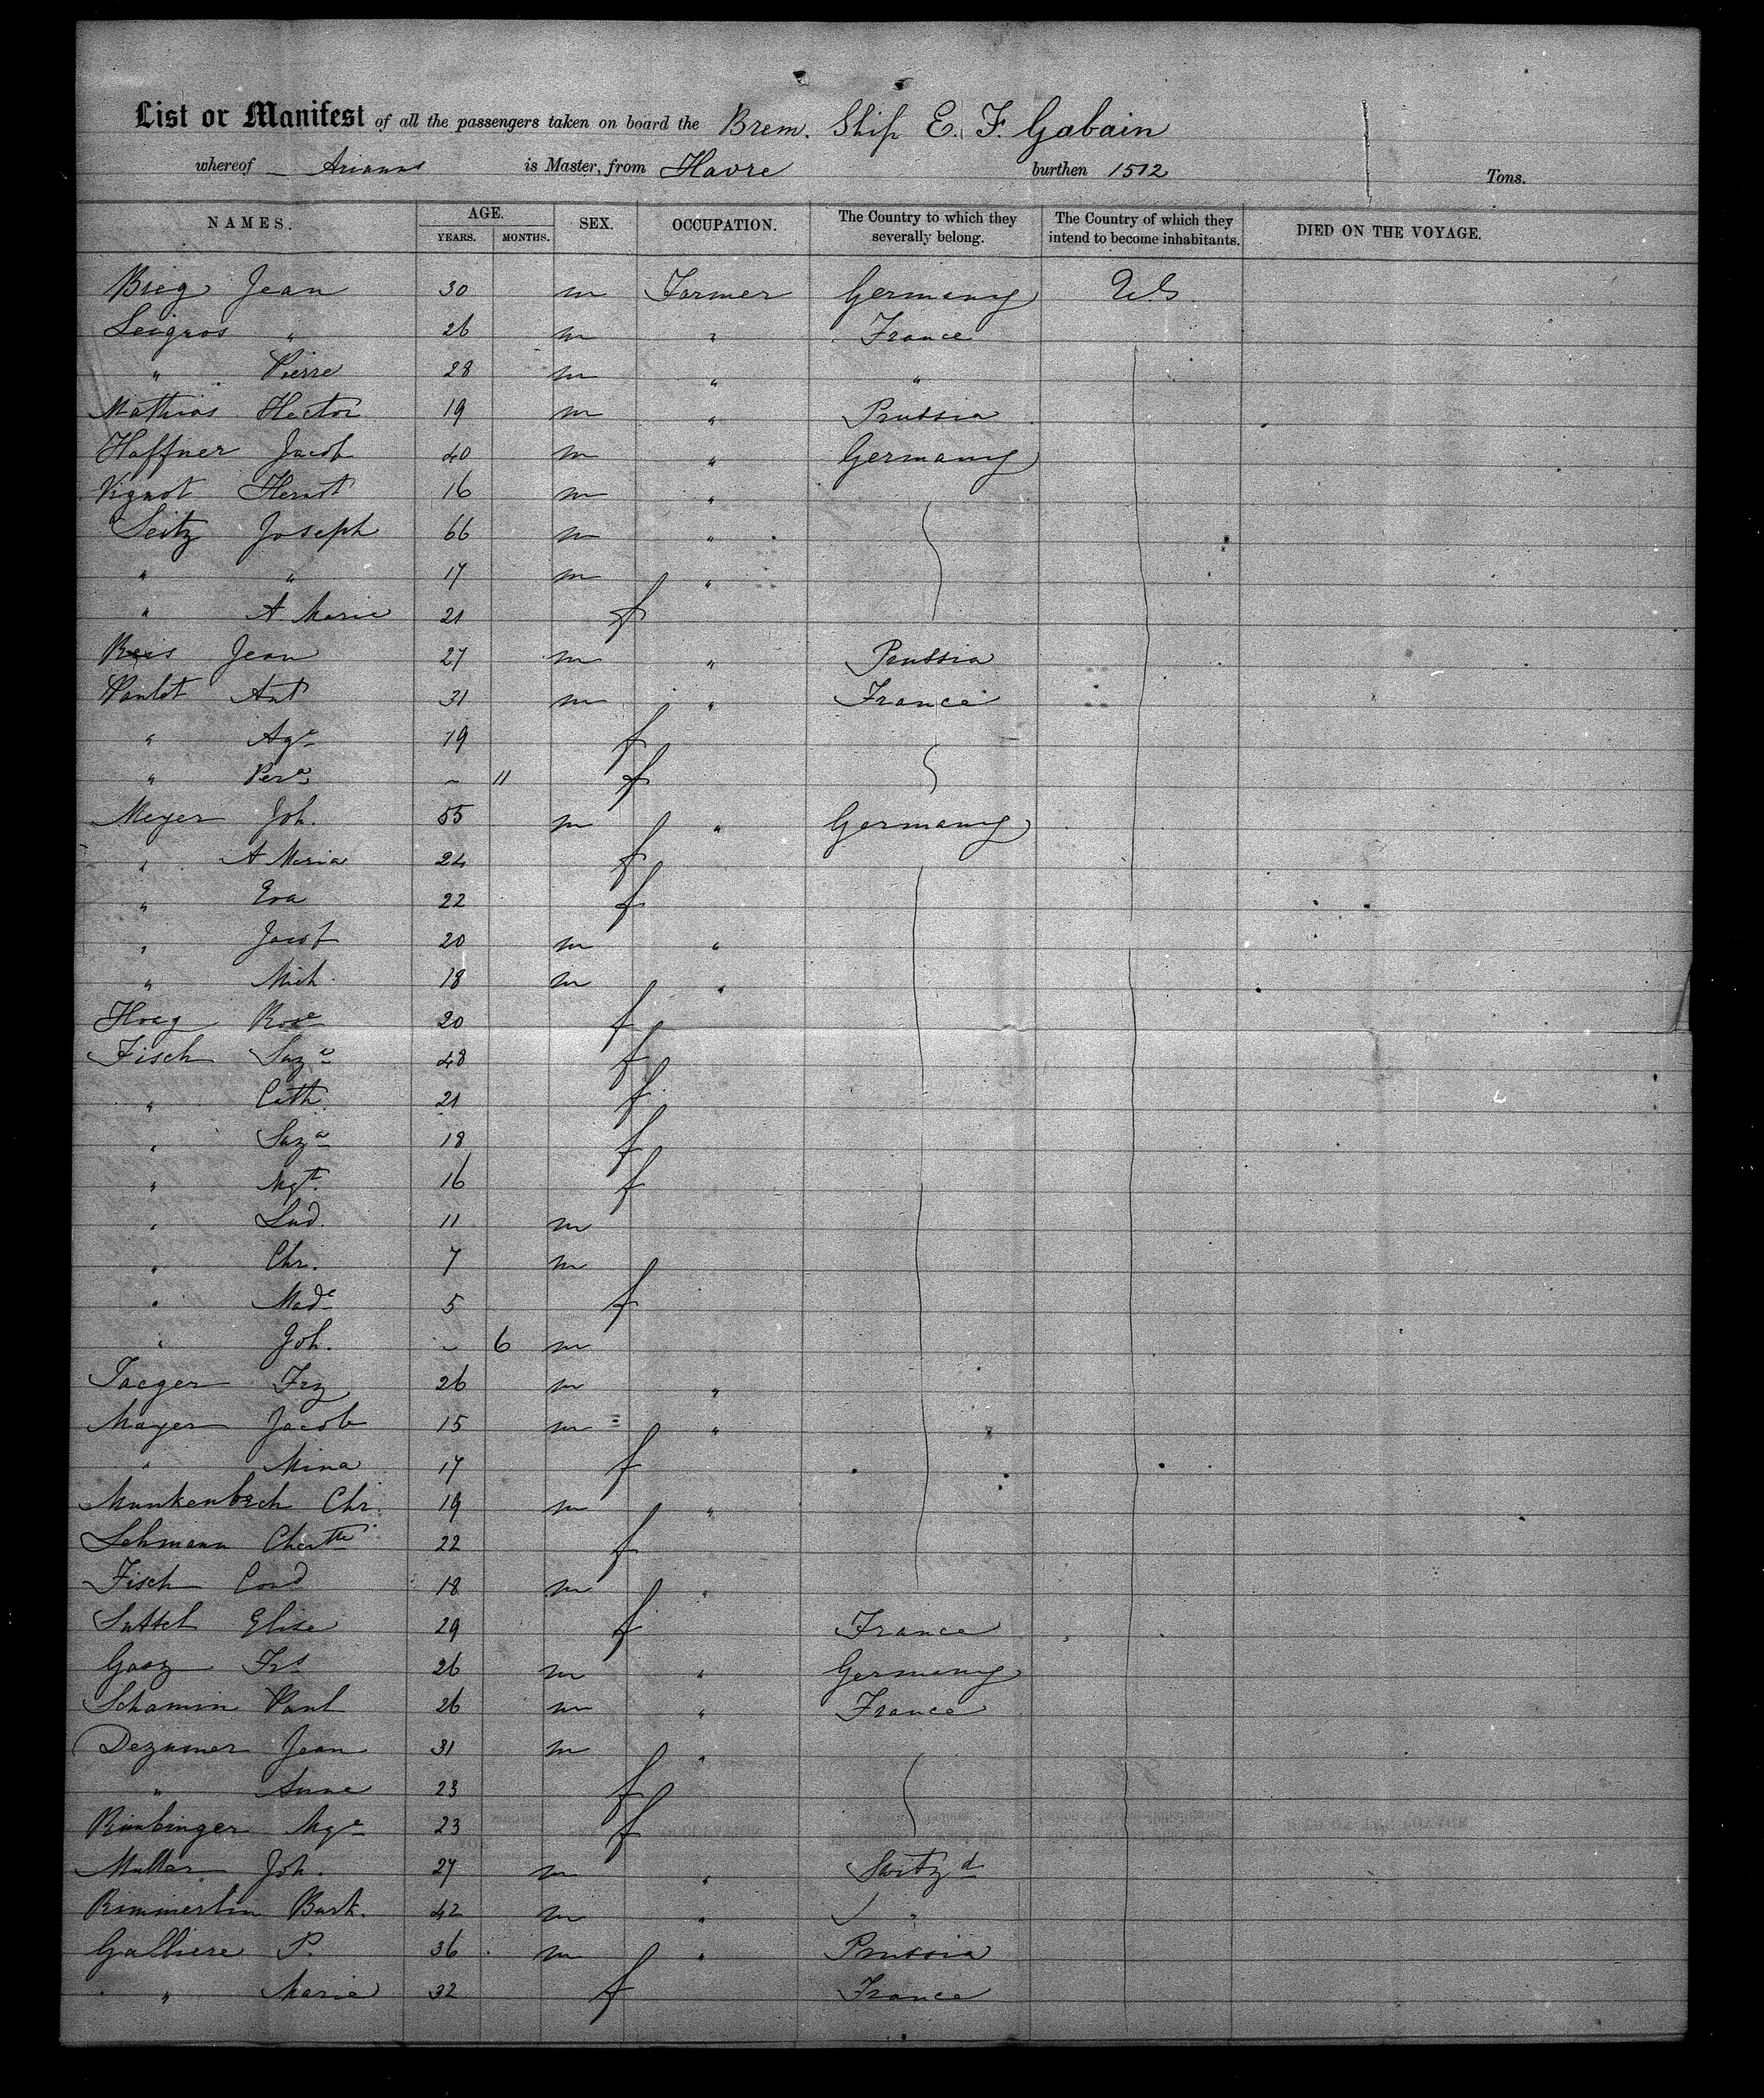 List or Manifest of all the passengers taken on board the Brem. Ship E. F. Gabain
whereof Arians is Master, from Havre burthen 1512 Tons.
NAMES. AGE. SEX. OCCUPATION. The Country to which they severally belong. The Country of which they intend to become inhabitants. DIED ON THE VOYAGE.
YEARS. MONTHS.
Breg Jean 30 m Farmer Germany U.S.
Leigros " 26 m " France
" Pierre 28 m " "
Mathias Hector 19 m " Prussia
Haffner Jacob 40 m " Germany
Vignot 16 m "
Seitz Joseph 66 m "
" " 17 m "
" A Marie 21 f
Reis Jean 27 m " Prussia
Paulet Ant 31 m " France
" Age 19 f
" ~ 11 f
Meyer Joh. 55 m " Germany
" A Maria 24 f
" Eva 22 f
" Jacob 20 m "
" Mich. 18 m "
Haag Rose 20 f
Fisch Suze 48 f
" Cath. 21 f
" Suza 18 f
" Mgt. 16 f
" Lud. 11 m
" Chr. 7 m
" Made 5 f
" Joh. ~ 6 m
Jaeger Frz 26 m "
Mayer Jacob 15 m "
" Mina 17 f
Munkenbech Chr. 19 m "
Lehmann Chartte 22 f
Fisch Cond 18 m "
Suttel Elise 29 f France
Gasz Frs 26 m " Germany
Schamin Paul 26 m " France
Dezumer Jean 31 m "
" Anne 23 f
Rimbinger Mge 23 f
Muller Joh. 27 m " Switzd
Rimmerlin Bart. 42 m " "
Galliere P. 36 m " Prussia
" Marie 32 f France